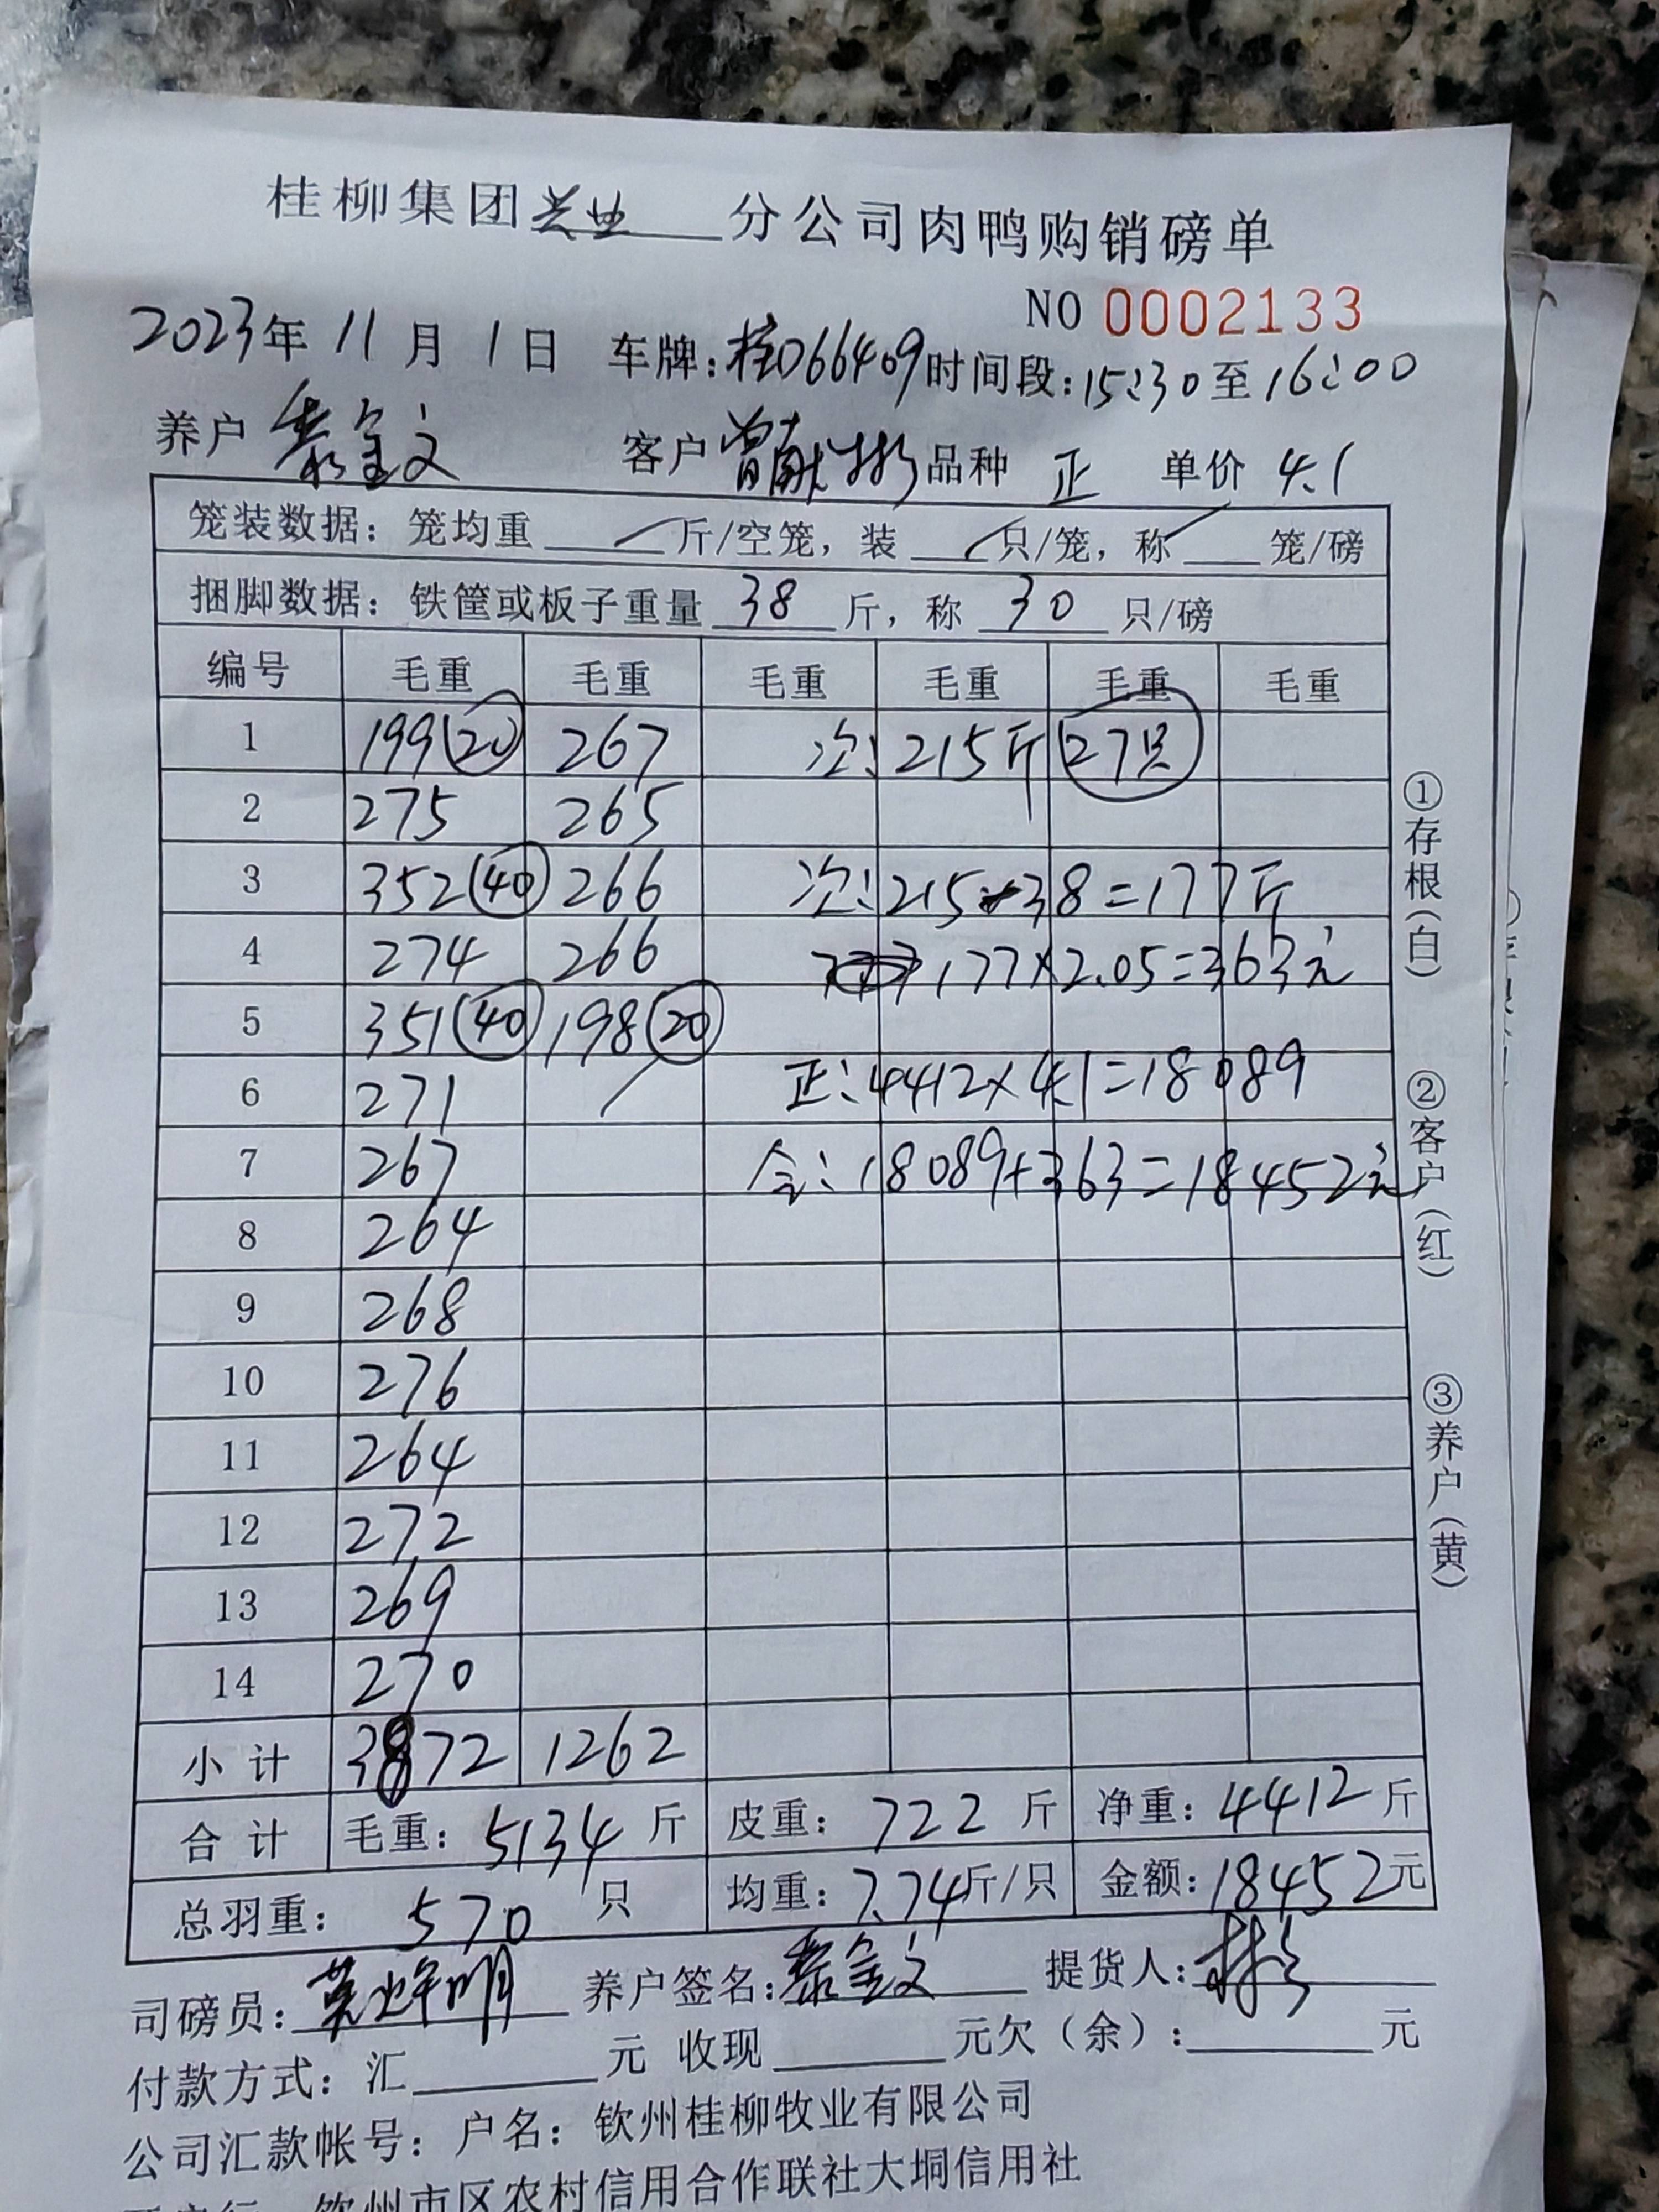 桂柳集团兴业分公司肉鸭购销磅单
NO 0002133
2023年11月1日 车牌:桂D66409时间段:15:30至16:00
养户 秦金文 客户 曾献彬 品种 正 单价 4.1
笼装数据：笼均重 / 斤/空笼，装 / 只/笼，称 / 笼/磅
捆脚数据：铁筐或板子重量 38 斤，称 30 只/磅
编号 毛重 毛重 毛重 毛重 毛重 毛重
1 199(20) 267 次:215斤 27只
2 275 265
3 352(40) 266 次:215-38=177斤
4 274 266 177×2.05=363元
5 351(40) 198(20)
6 271 / 正:4412×4.1=18089
7 267 合:18089+363=18452元
8 264
9 268
10 276
11 264
12 272
13 269
14 270
小计 3872 1262
合计 毛重：5134斤 皮重：722斤 净重：4412斤
总羽重：570只 均重：7.74斤/只 金额：18452元
司磅员： 养户签名：秦金文 提货人：彬
付款方式：汇 元 收现 元欠（余）： 元
公司汇款帐号：户名：钦州桂柳牧业有限公司
钦州市区农村信用合作联社大垌信用社
①存根(白)
②客户(红)
③养户(黄)